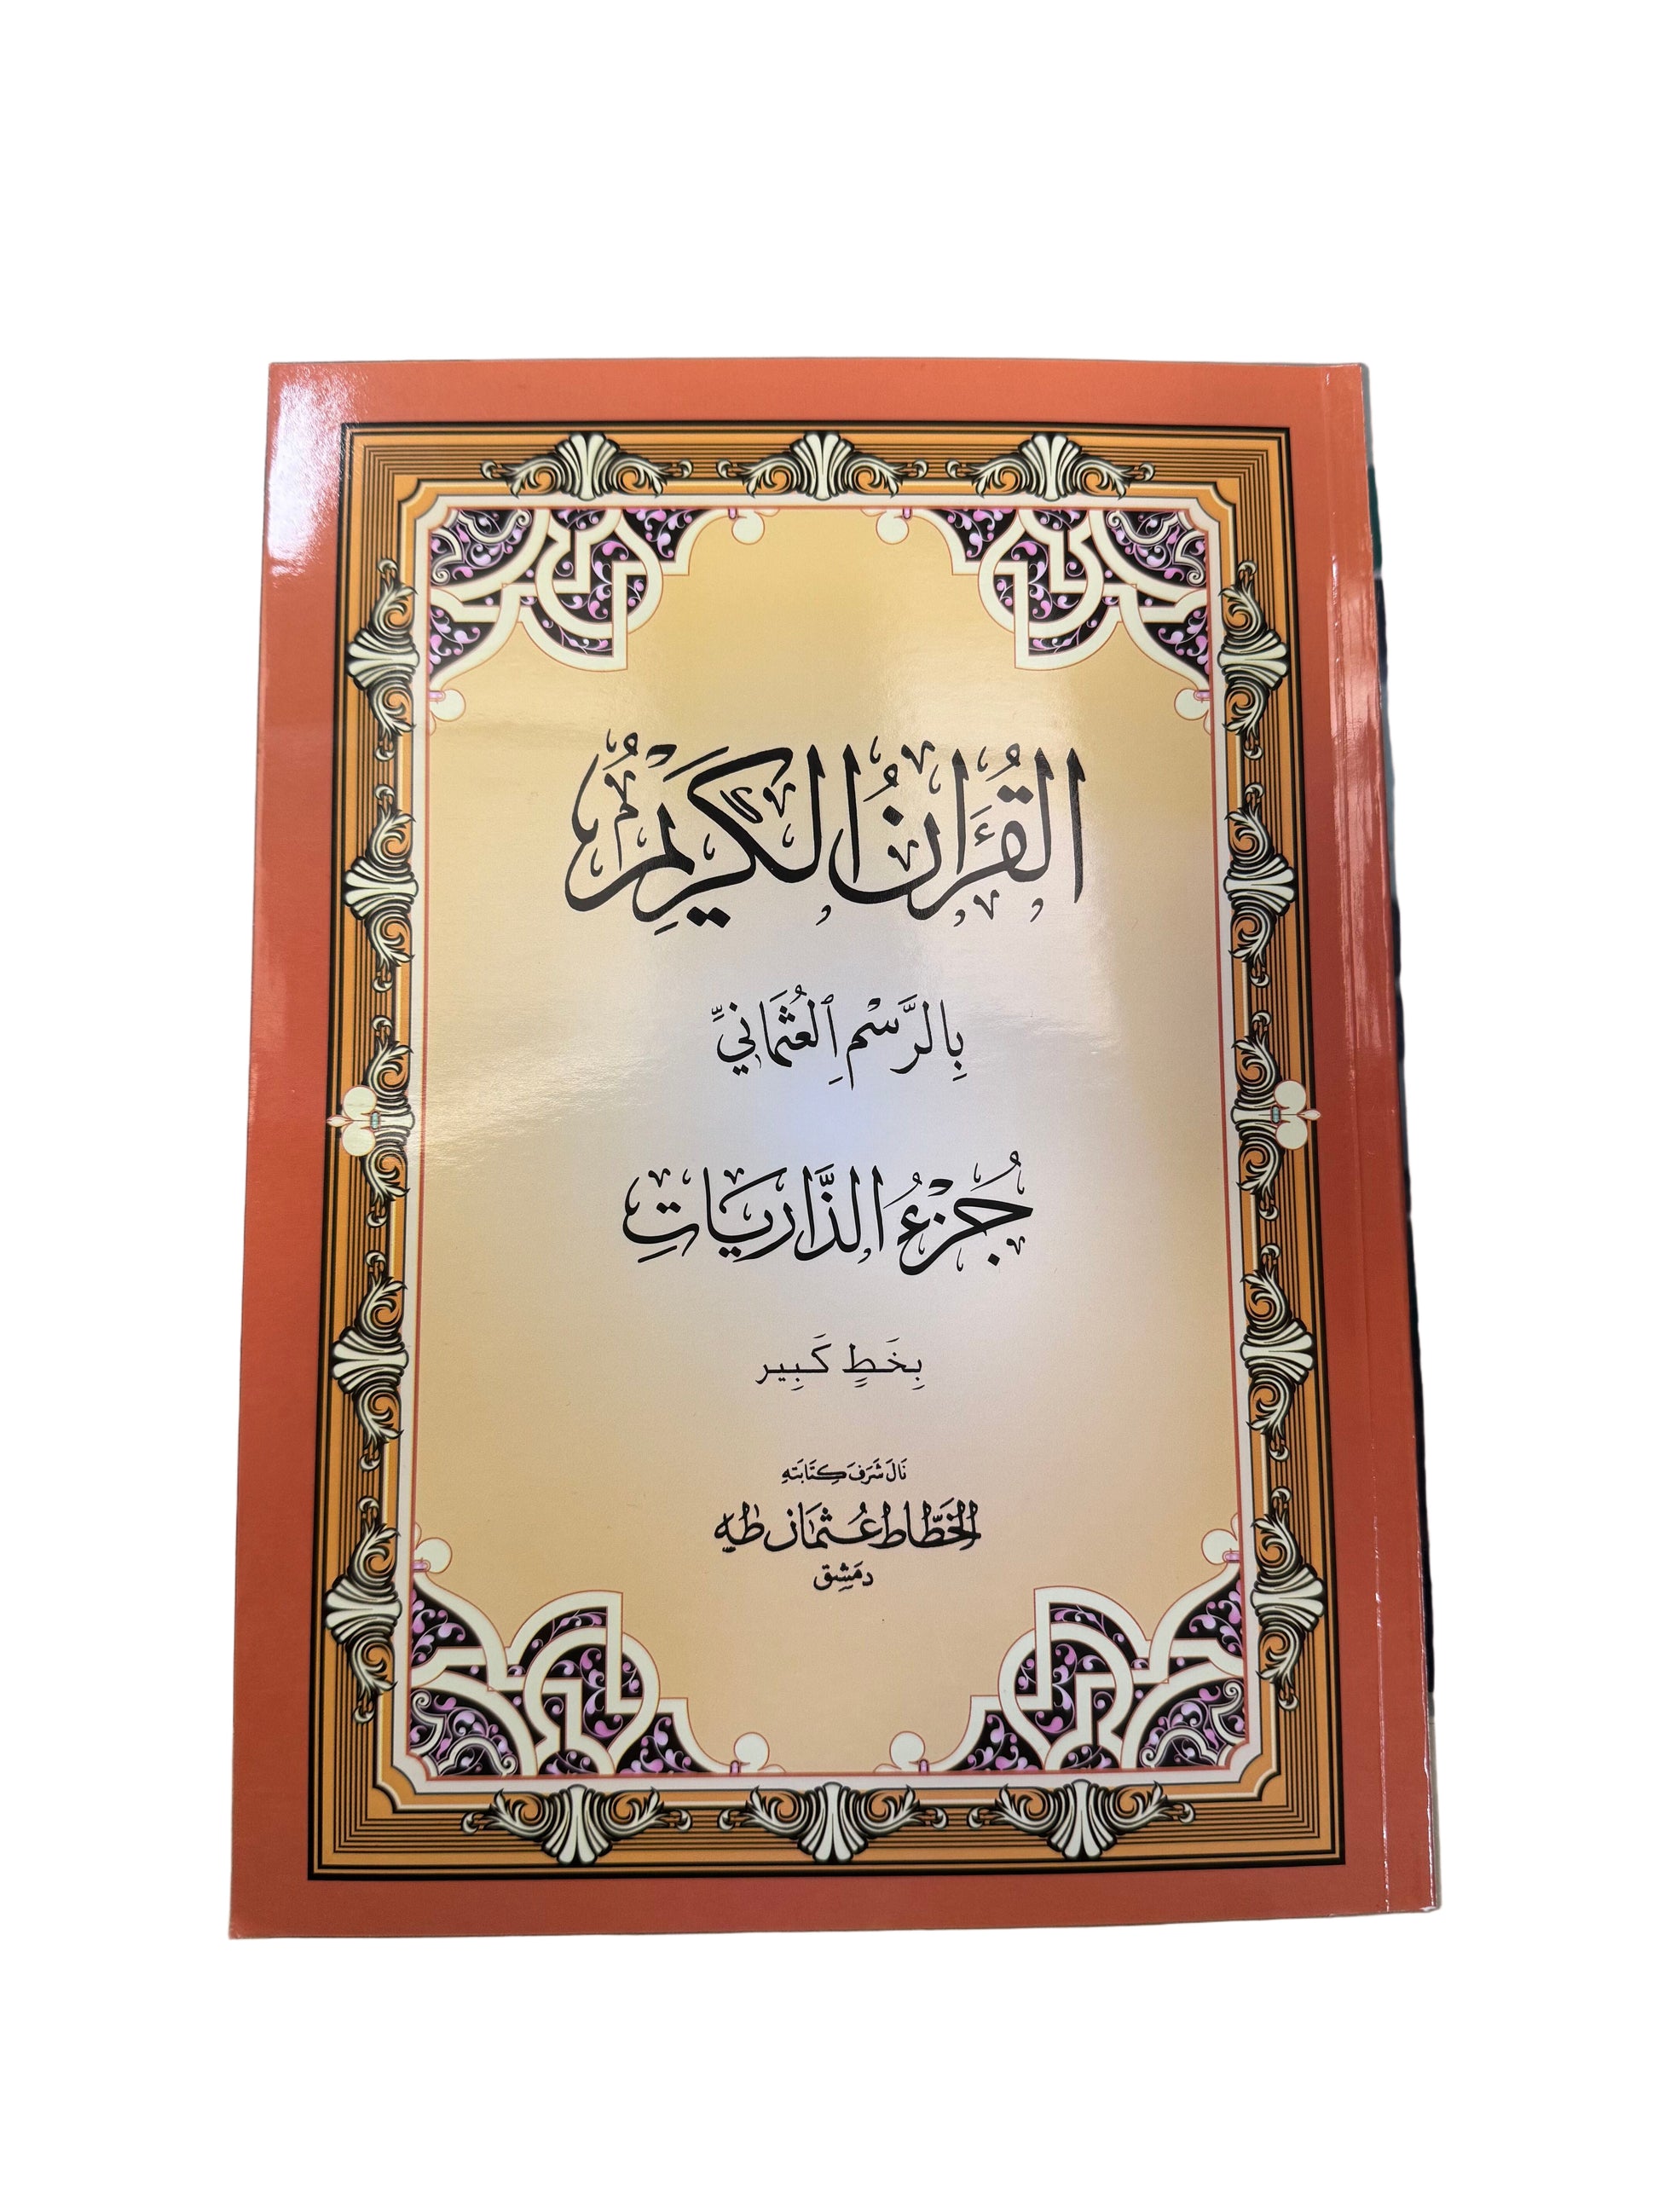 القُرْءَانُ الكَرِيمُ
بِالرَّسْمِ ٱلعُثْمَانِيِّ
جُزْءُ الذَّارِيَاتِ
بِخَطٍ كَبِير
نَالَ شَرَفَ كِتَابَتِهِ
الخَطَّاط عُثْمَان طٰه
دِمَشِق